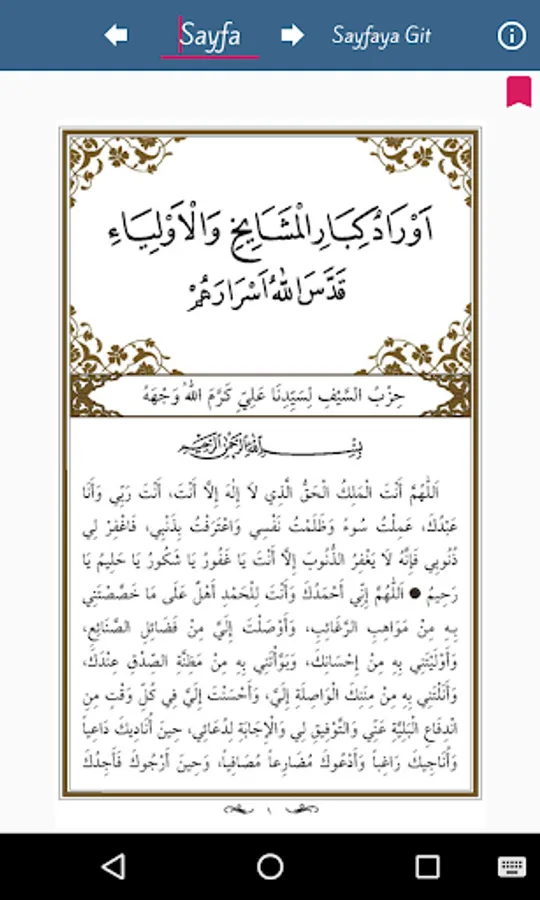 Sayfa Sayfaya Git
اَوْرَادُ كِبَارِ الْمَشَايِخِ وَالْاَوْلِيَاءِ
قَدَّسَ اللهُ اَسْرَارَهُمْ
حِزْبُ السَّيْفِ لِسَيِّدِنَا عَلِيٍّ كَرَّمَ اللهُ وَجْهَهُ
بِسْمِ اللهِ الرَّحْمٰنِ الرَّحِيمِ
اَللّٰهُمَّ أَنْتَ الْمَلِكُ الْحَقُّ الَّذِي لاَ إِلٰهَ إِلاَّ أَنْتَ، أَنْتَ رَبِّي وَأَنَا
عَبْدُكَ، عَمِلْتُ سُوءً وَظَلَمْتُ نَفْسِي وَاعْتَرَفْتُ بِذَنْبِي، فَاغْفِرْ لِي
ذُنُوبِي فَإِنَّهُ لاَ يَغْفِرُ الذُّنُوبَ إِلاَّ أَنْتَ يَا غَفُورُ يَا شَكُورُ يَا حَلِيمُ يَا
رَحِيمُ ● اَللّٰهُمَّ إِنِّي أَحْمَدُكَ وَأَنْتَ لِلْحَمْدِ أَهْلٌ عَلَى مَا خَصَّصْتَنِي
بِهِ مِنْ مَوَاهِبِ الرَّغَائِبِ، وَأَوْصَلْتَ إِلَيَّ مِنْ فَضَائِلِ الصَّنَائِعِ،
وَأَوْلَيْتَنِي بِهِ مِنْ إِحْسَانِكَ، وَبَوَّأْتَنِي بِهِ مِنْ مَظِنَّةِ الصِّدْقِ عِنْدَكَ،
وَأَنَلْتَنِي بِهِ مِنْ مِنَنِكَ الْوَاصِلَةِ إِلَيَّ، وَأَحْسَنْتَ إِلَيَّ فِي كُلِّ وَقْتٍ مِنِ
انْدِفَاعِ الْبَلِيَّةِ عَنِّي وَالتَّوْفِيقِ لِي وَالْإِجَابَةِ لِدُعَائِي، حِينَ أُنَادِيكَ دَاعِياً
وَأُنَاجِيكَ رَاغِباً وَأَدْعُوكَ مُضَارِعاً مُصَافِياً، وَحِينَ أَرْجُوكَ فَأَجِدُكَ
١